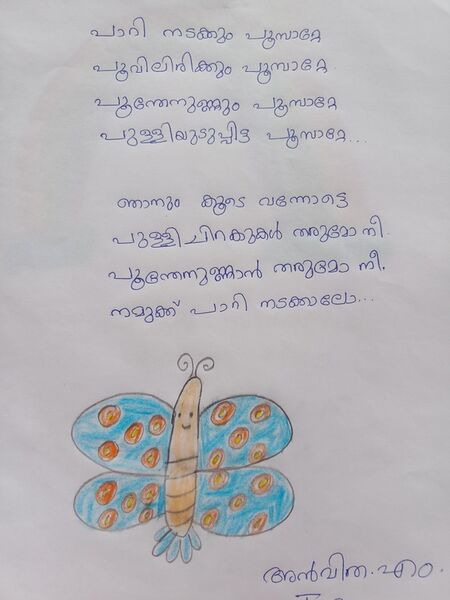 പാറി നടക്കും പൂമ്പാറ്റേ
പൂവിലിരിക്കും പൂമ്പാറ്റേ
പൂന്തേനുണ്ണും പൂമ്പാറ്റേ
പുള്ളിയുടുപ്പിട്ട പൂമ്പാറ്റേ...
ഞാനും കൂടെ വന്നോട്ടെ
പുള്ളിചിറകുകൾ തരുമോ നീ.
പൂന്തേനുണ്ണാൻ തരുമോ നീ.
നമുക്ക് പാറി നടക്കാലോ...
അൻവിത.എം.